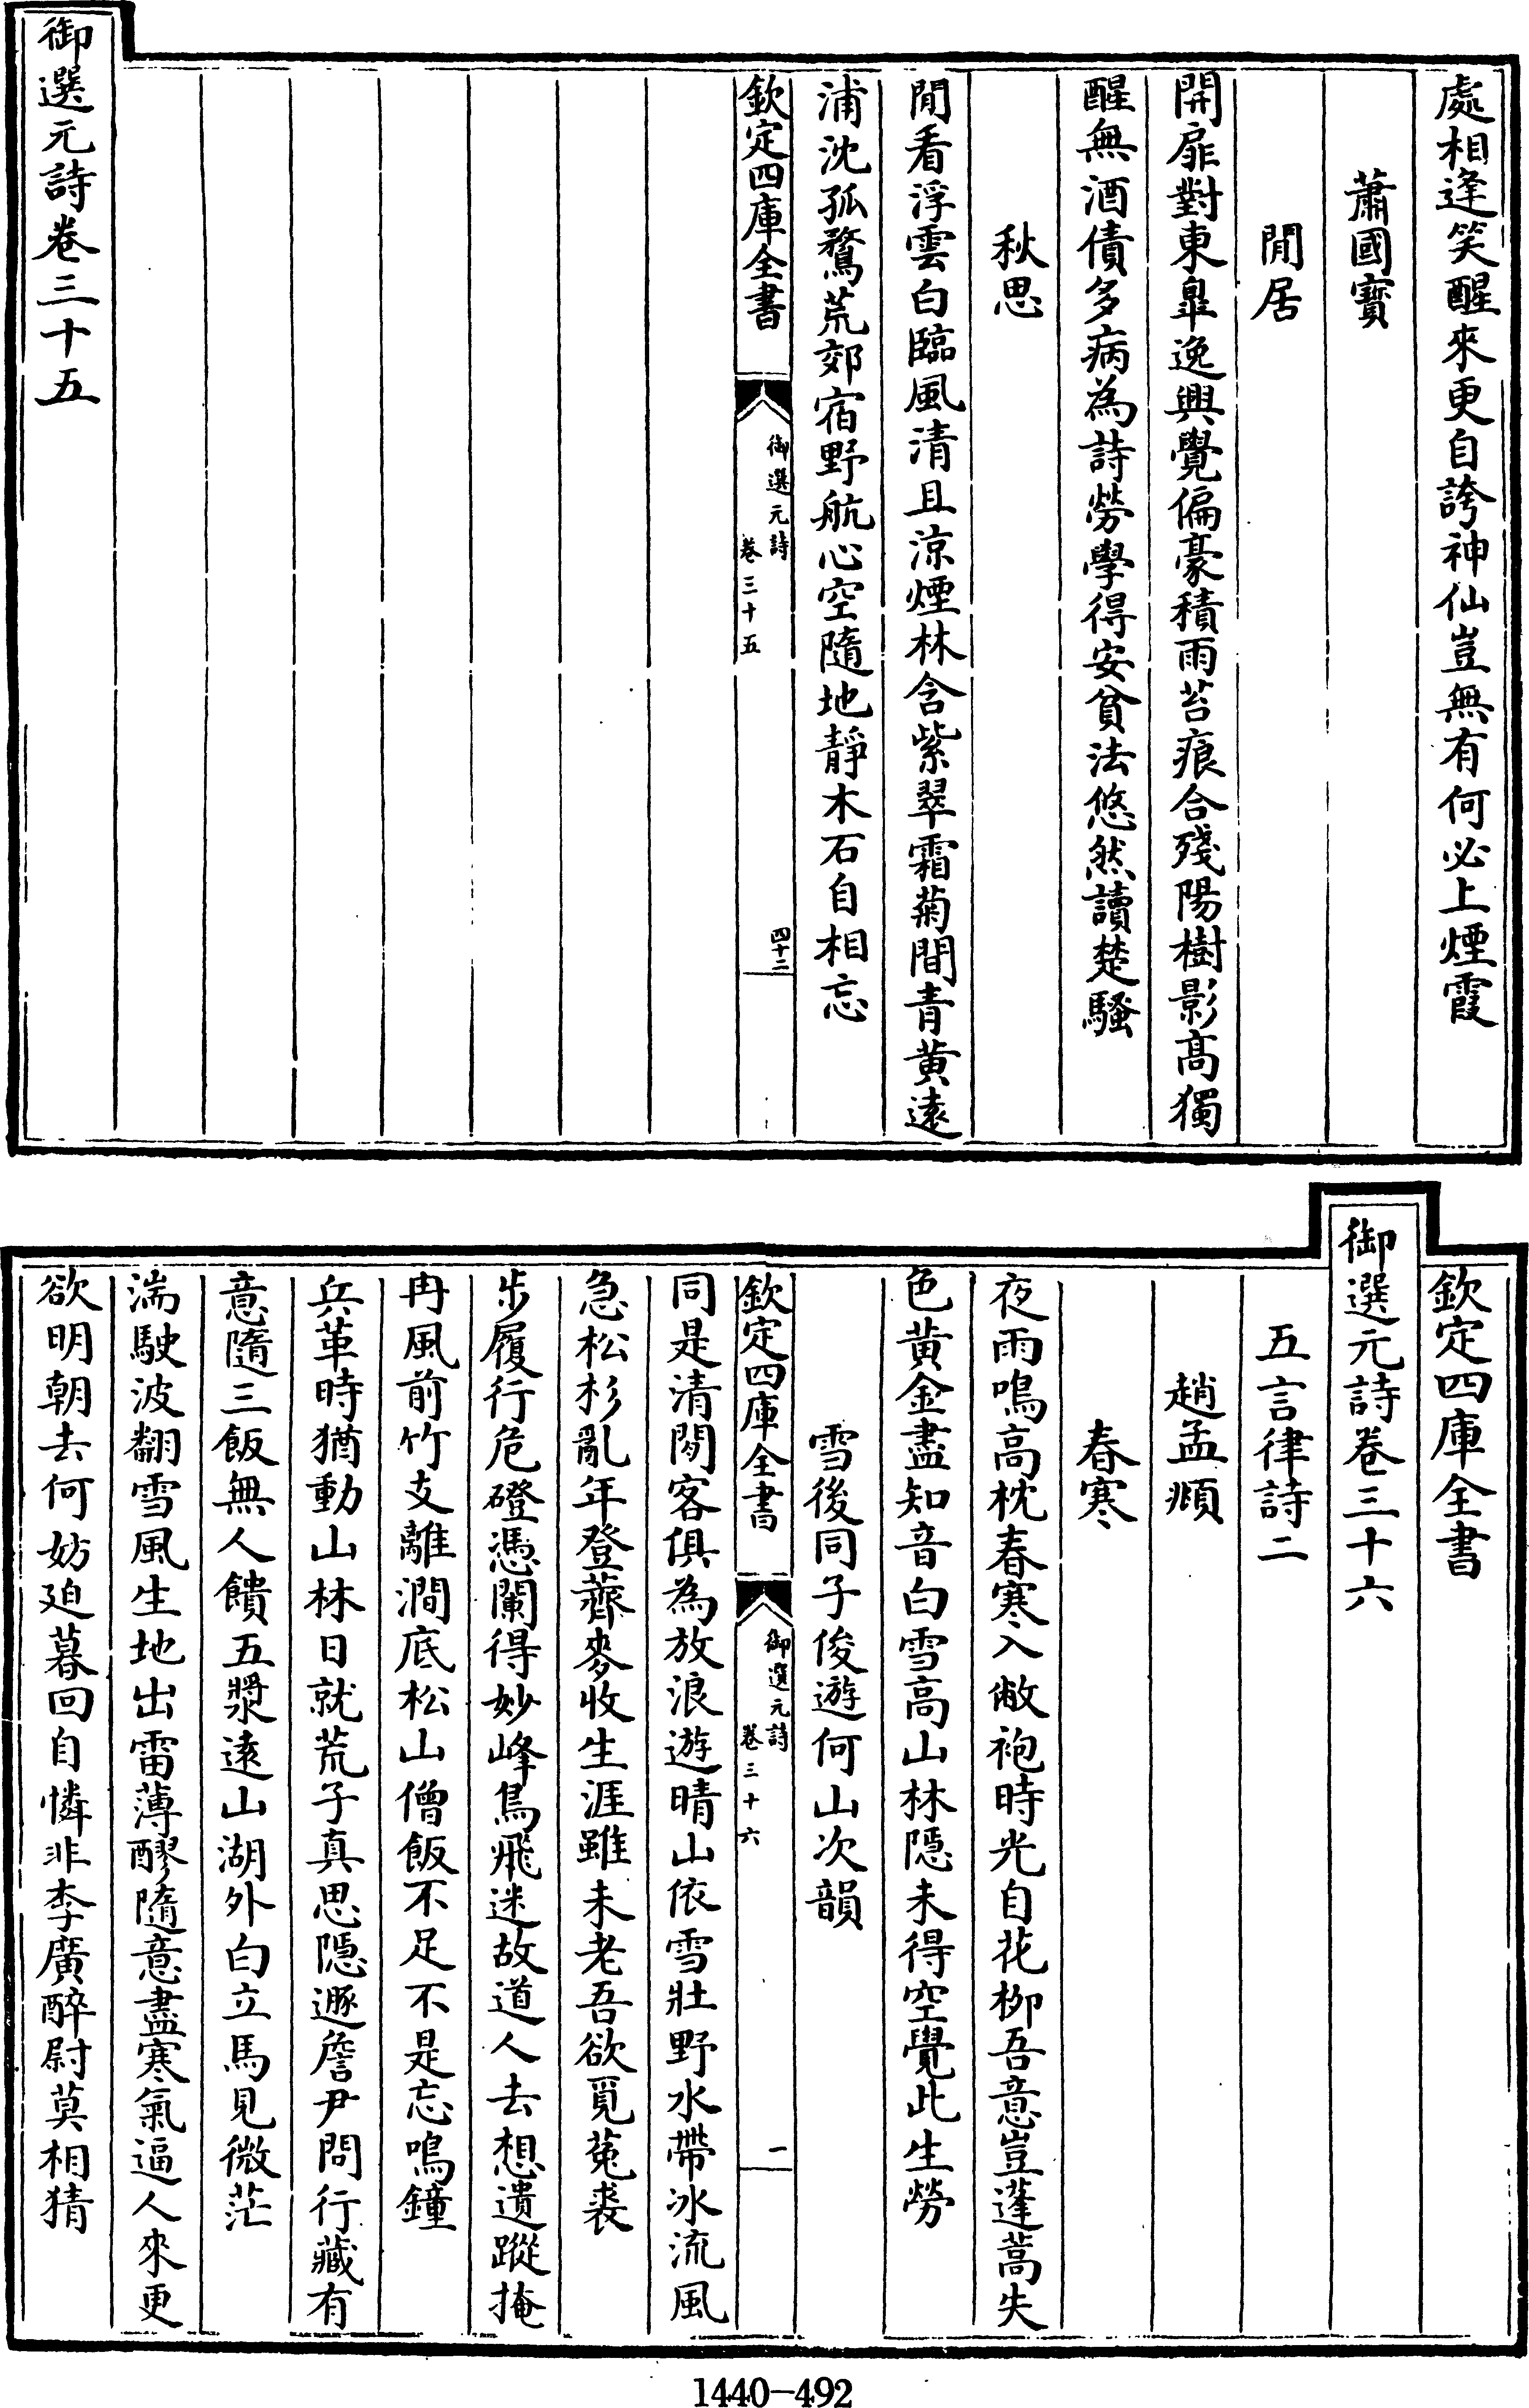 處相逢笑醒來更自誇神仙豈無有何必上煙霞
蕭國寶
閒居
開扉對東臯逸興覺偏豪積雨苔痕合殘陽樹影高獨
醒無酒債多病為詩勞學得安貧法悠然讀楚騷
秋思
閒看浮雲白臨風清且涼煙林含紫翠霜菊間青黄遠
浦沈孤鶩荒郊宿野航心空隨地靜木石自相忘
欽定四庫全書
御選元詩
卷三十五
四十二
御選元詩卷三十五
欽定四庫全書
御選元詩卷三十六
五言律詩二
趙孟頫
春寒
夜雨鳴高枕春寒入敝袍時光自花柳吾意豈蓬蒿失
色黄金盡知音白雪高山林隱未得空覺此生勞
雪後同子俊遊何山次韻
欽定四庫全書
御選元詩
卷三十六
一
同是清閒客俱為放浪遊晴山依雪壯野水帶冰流風
急松杉亂年登薺麥收生涯雖未老吾欲覓菟裘
步履行危磴憑闌得妙峰鳥飛迷故道人去想遺蹤掩
冉風前竹支離澗底松山僧飯不足不是忘鳴鐘
兵革時猶動山林日就荒子真思隱遯詹尹問行藏有
意隨三飯無人饋五漿遠山湖外白立馬見微茫
湍駛波翻雪風生地出雷薄醪隨意盡寒氣逼人來更
欲明朝去何妨迫暮回自憐非李廣醉尉莫相猜
1440-492